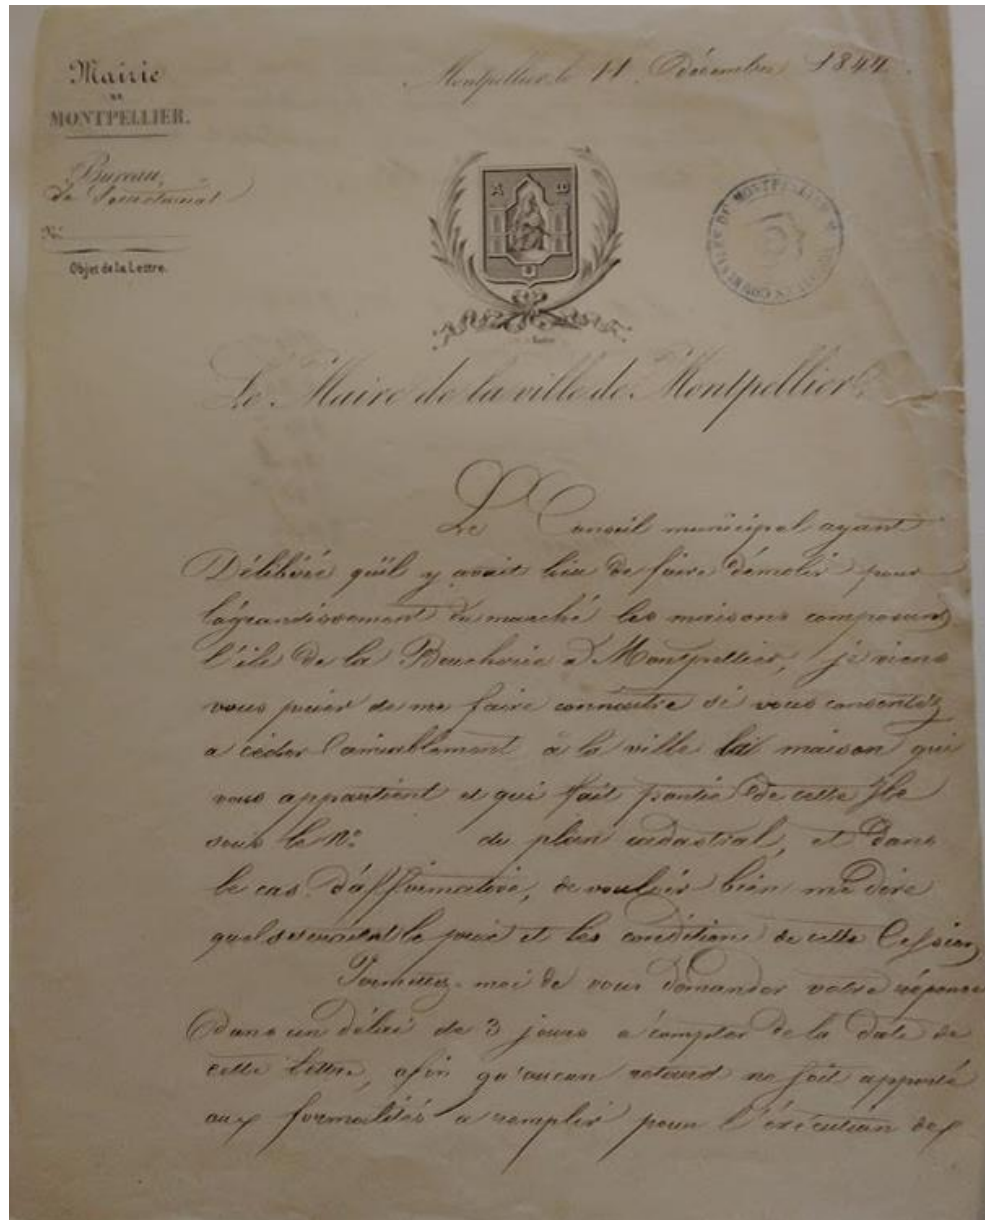 Mairie
DE
MONTPELLIER.
Bureau
de Secrétariat
N.º
Objet de la Lettre.
Montpellier, le 11 Décembre 1844.
A M
Le Maire de la ville de Montpellier
Le Conseil municipal ayant
Délibéré qu'il y avait lieu de faire démolir pour
l'agrandissement du marché les maisons composant
l'île de la Boucherie à Montpellier, je viens
vous prier de me faire connaître si vous consentez
a céder l'amiablement à la ville la maison qui
vous appartient et qui fait partie de cette Ile
sous le N.º du plan cadastral, et dans
le cas d'affirmative, de vouloir bien me dire
quels seraient le prix et les conditions de cette Cession
Permettez-moi de vous demander votre réponse
Dans un délai de 3 jours a compter de la date de
cette lettre, afin qu'aucun retard ne soit apporté
aux formalités a remplir pour l'exécution des